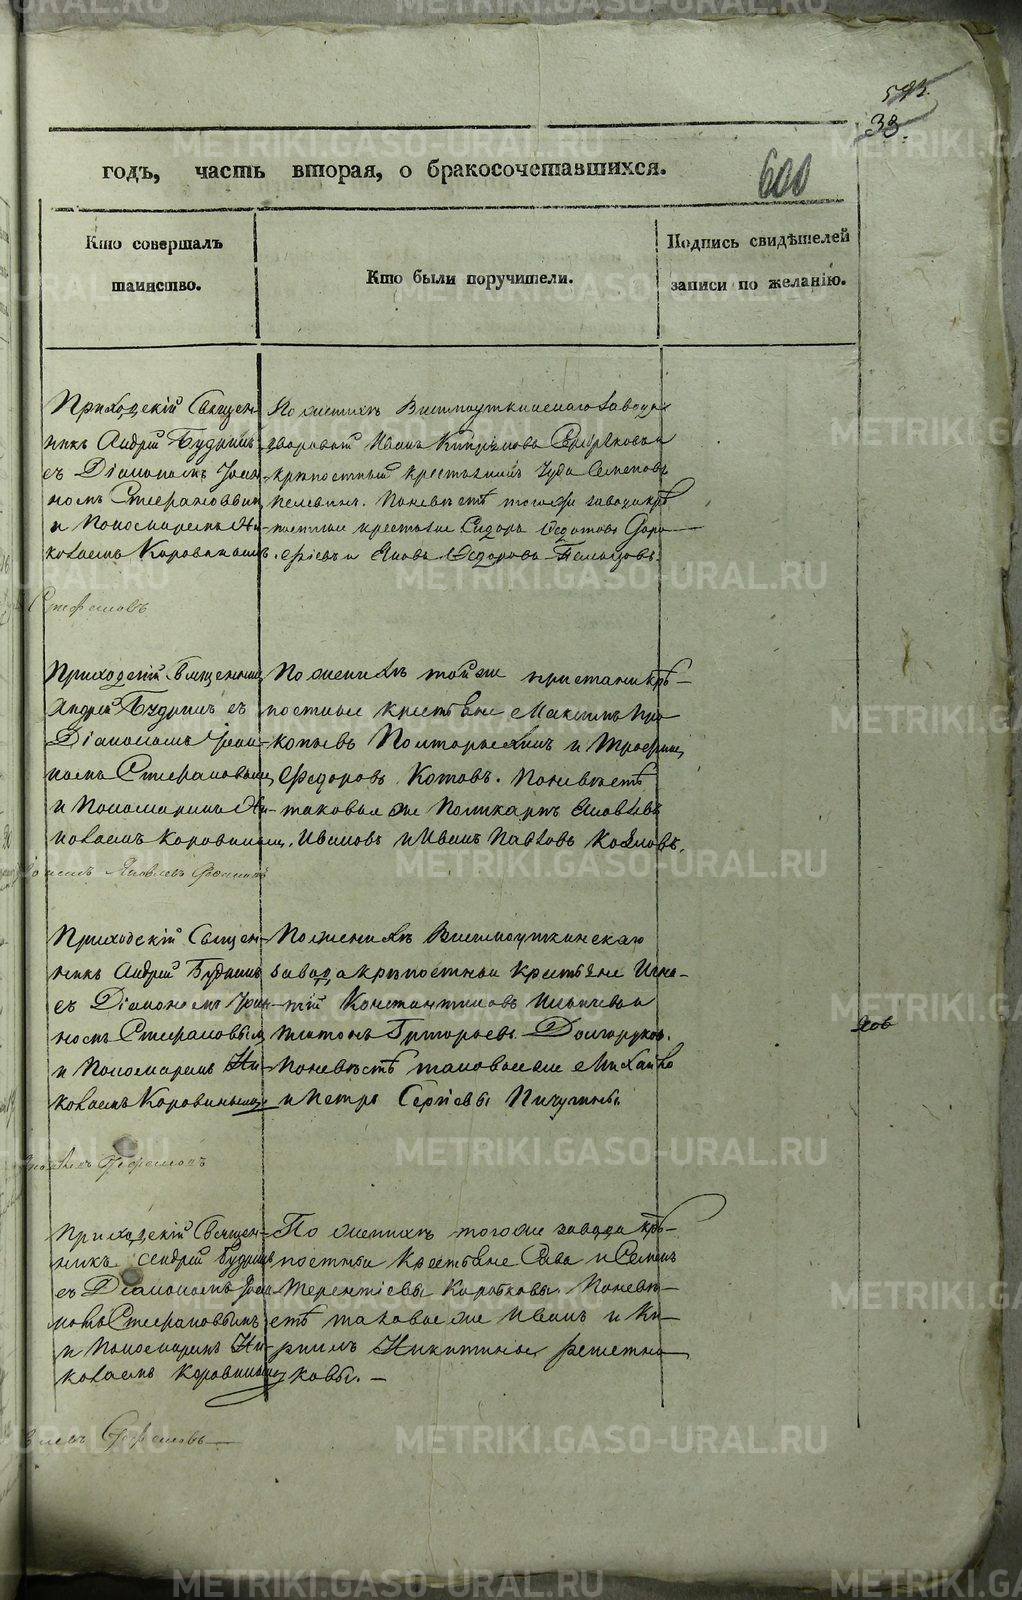 593.
33.
600
годъ, часть вторая, о бракосочетавшихся.
Кто совершалъ
таинство.
Кто были поручители.
Подпись свидѣтелей
записи по желанію.
Приходскій Священ-
никъ Андрей Будринъ
съ Діакономъ Іоан-
номъ Стефановымъ
и Пономаремъ Ни-
колаемъ Коровинымъ.
По женихѣ Висимоуткинскаго завода
дворовой Иванъ
крѣпостный крестьянинъ Семеновъ
По невѣстѣ того же завода крѣ-
постные крестьяне Сидоръ Федотовъ
и Яковъ Федоровъ
Приходскій Священникъ
Андрей Будринъ съ
Діакономъ Іоан-
номъ Стефановымъ
и Пономаремъ Ни-
колаемъ Коровинымъ.
По женихѣ той же пристани крѣ-
постные крестьяне Максимъ Про-
копьевъ и Трофим
Федоровъ Котовъ. По невѣстѣ
таковые же Поликарпъ Яковлевъ
Ивановъ и Иванъ Павловъ Козловъ.
Приходскій Священ-
никъ Андрей Будринъ
съ Діакономъ Іоан-
номъ Стефановымъ
и Пономаремъ Ни-
колаемъ Коровинымъ
По женихѣ Висимоуткинскаго
завода крѣпостные крестьяне Игна-
тій Константиновъ и
Платонъ Григорьевъ Долгоруковъ.
По невѣстѣ таковые же Михайло
и Петръ Сергіевы Пичугины.
ковъ
Приходскій Священ-
никъ Андрей Будринъ
съ Діакономъ Іоан-
номъ Стефановымъ
и Пономаремъ Ни-
колаемъ Коровинымъ
По женихѣ того же завода крѣ-
постные Крестьяне Сава и Семенъ
Терентіевы Коротковы. По невѣ-
стѣ таковые же Иванъ и Ки-
рилъ Никитины Решетни-
ковы. —
METRIKI.GASO-URAL.RU